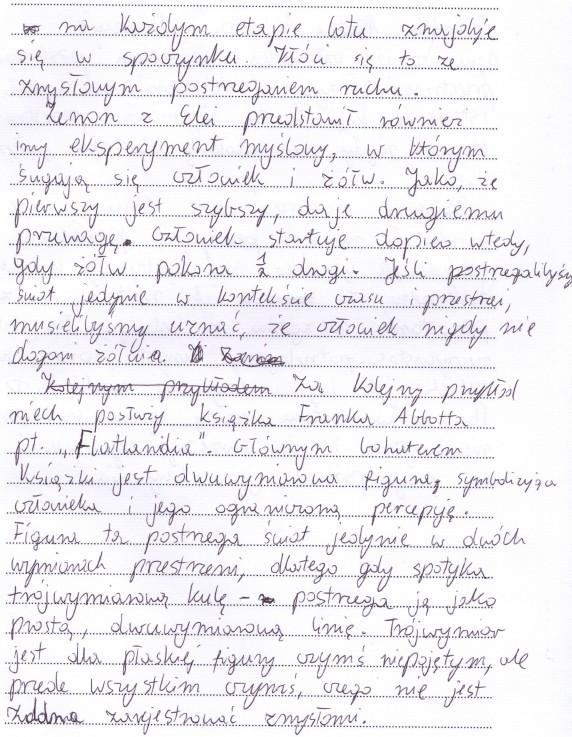 na każdym etapie lotu znajduje
się w spoczynku. Kłóci się to ze
zmysłowym postrzeganiem ruchu.
Zenon z Elei przedstawił również
inny eksperyment myślowy, w którym
ścigają się człowiek i żółw. Jako, że
pierwszy jest szybszy, daje drugiemu
przewagę. Człowiek startuje dopiero wtedy,
gdy żółw pokona 1/2 drogi. Jeśli postrzegalibyśmy
świat jedynie w kontekście czasu i przestrzeni,
musielibyśmy uznać, że człowiek nigdy nie
dogoni żółwia.
Kolejnym przykładem Za kolejny przykład
niech posłuży książka Franka Abbotta
pt. „Flatlandia". Głównym bohaterem
książki jest dwuwymiarowa figura, symbolizująca
człowieka i jego ograniczoną percepcję.
Figura ta postrzega świat jedynie w dwóch
wymiarach przestrzeni, dlatego gdy spotyka
trójwymiarową kulę – postrzega ją jako
prostą, dwuwymiarową linię. Trójwymiar
jest dla płaskiej figury czymś niepojętym, ale
przede wszystkim czymś, czego nie jest
zarejestrować zmysłami.